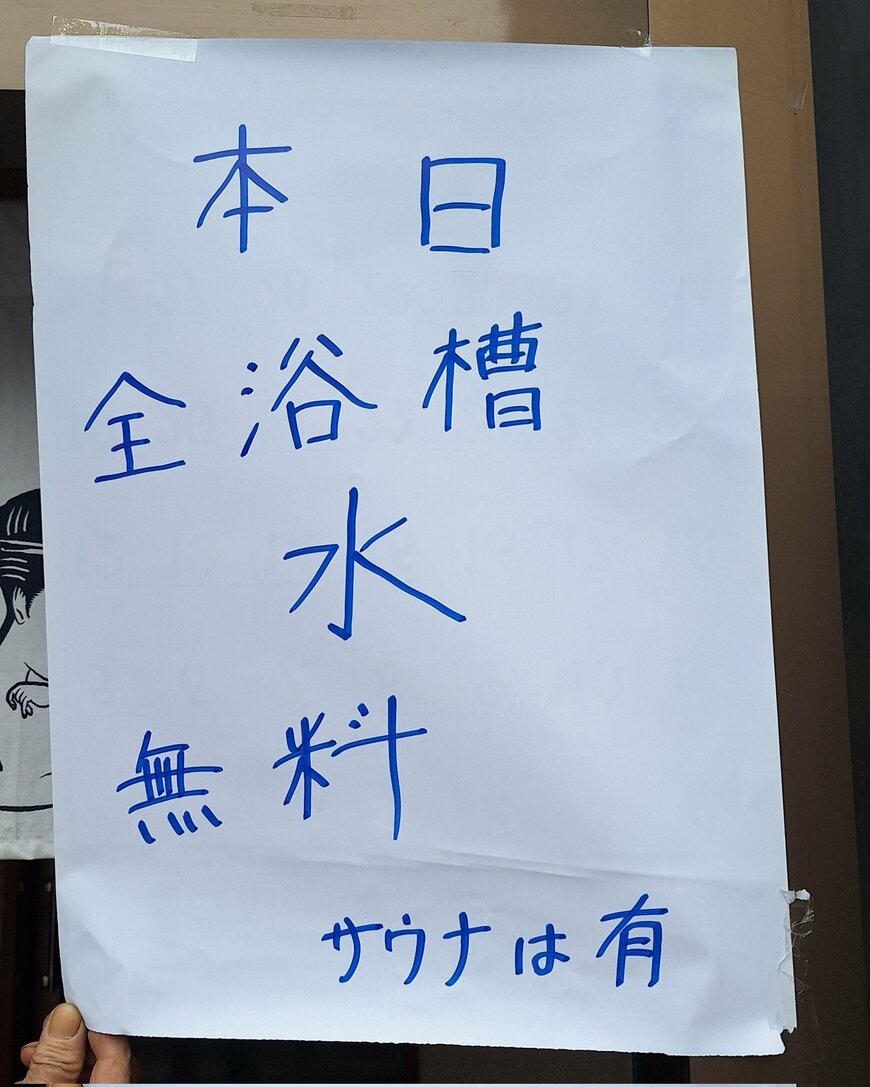 本日
全浴槽
水
無料
サウナは有